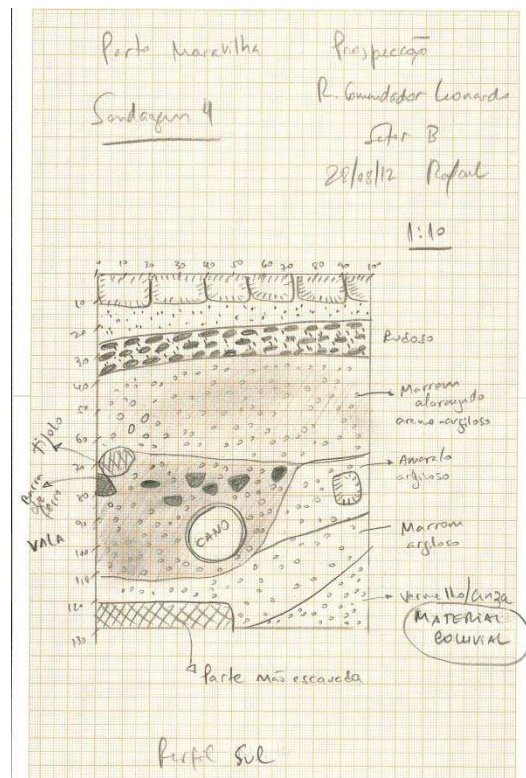 Porto Maravilha
Prospecção
Sondagem 4
R. Comendador Leonardo
Setor B
28/08/12 Rafael
1:10
0 10 20 30 40 50 60 70 80 90 100
10
20
30
40
50
60
70
80
90
100
110
120
130
Rudoso
Marrom
alaranjado
areno-argiloso
Amarelo
argiloso
Marrom
argiloso
Vermelho/cinza
MATERIAL
COLUVIAL
Tijolo
Barra
de
ferro
VALA
CANO
Parte não escavada
Perfil Sul